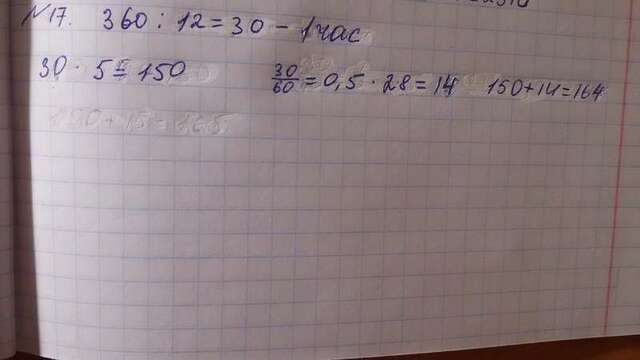 №17. 360 : 12 = 30 - 1 час
30 · 5 = 150 30/60 = 0,5 · 28 = 14 150 + 14 = 164